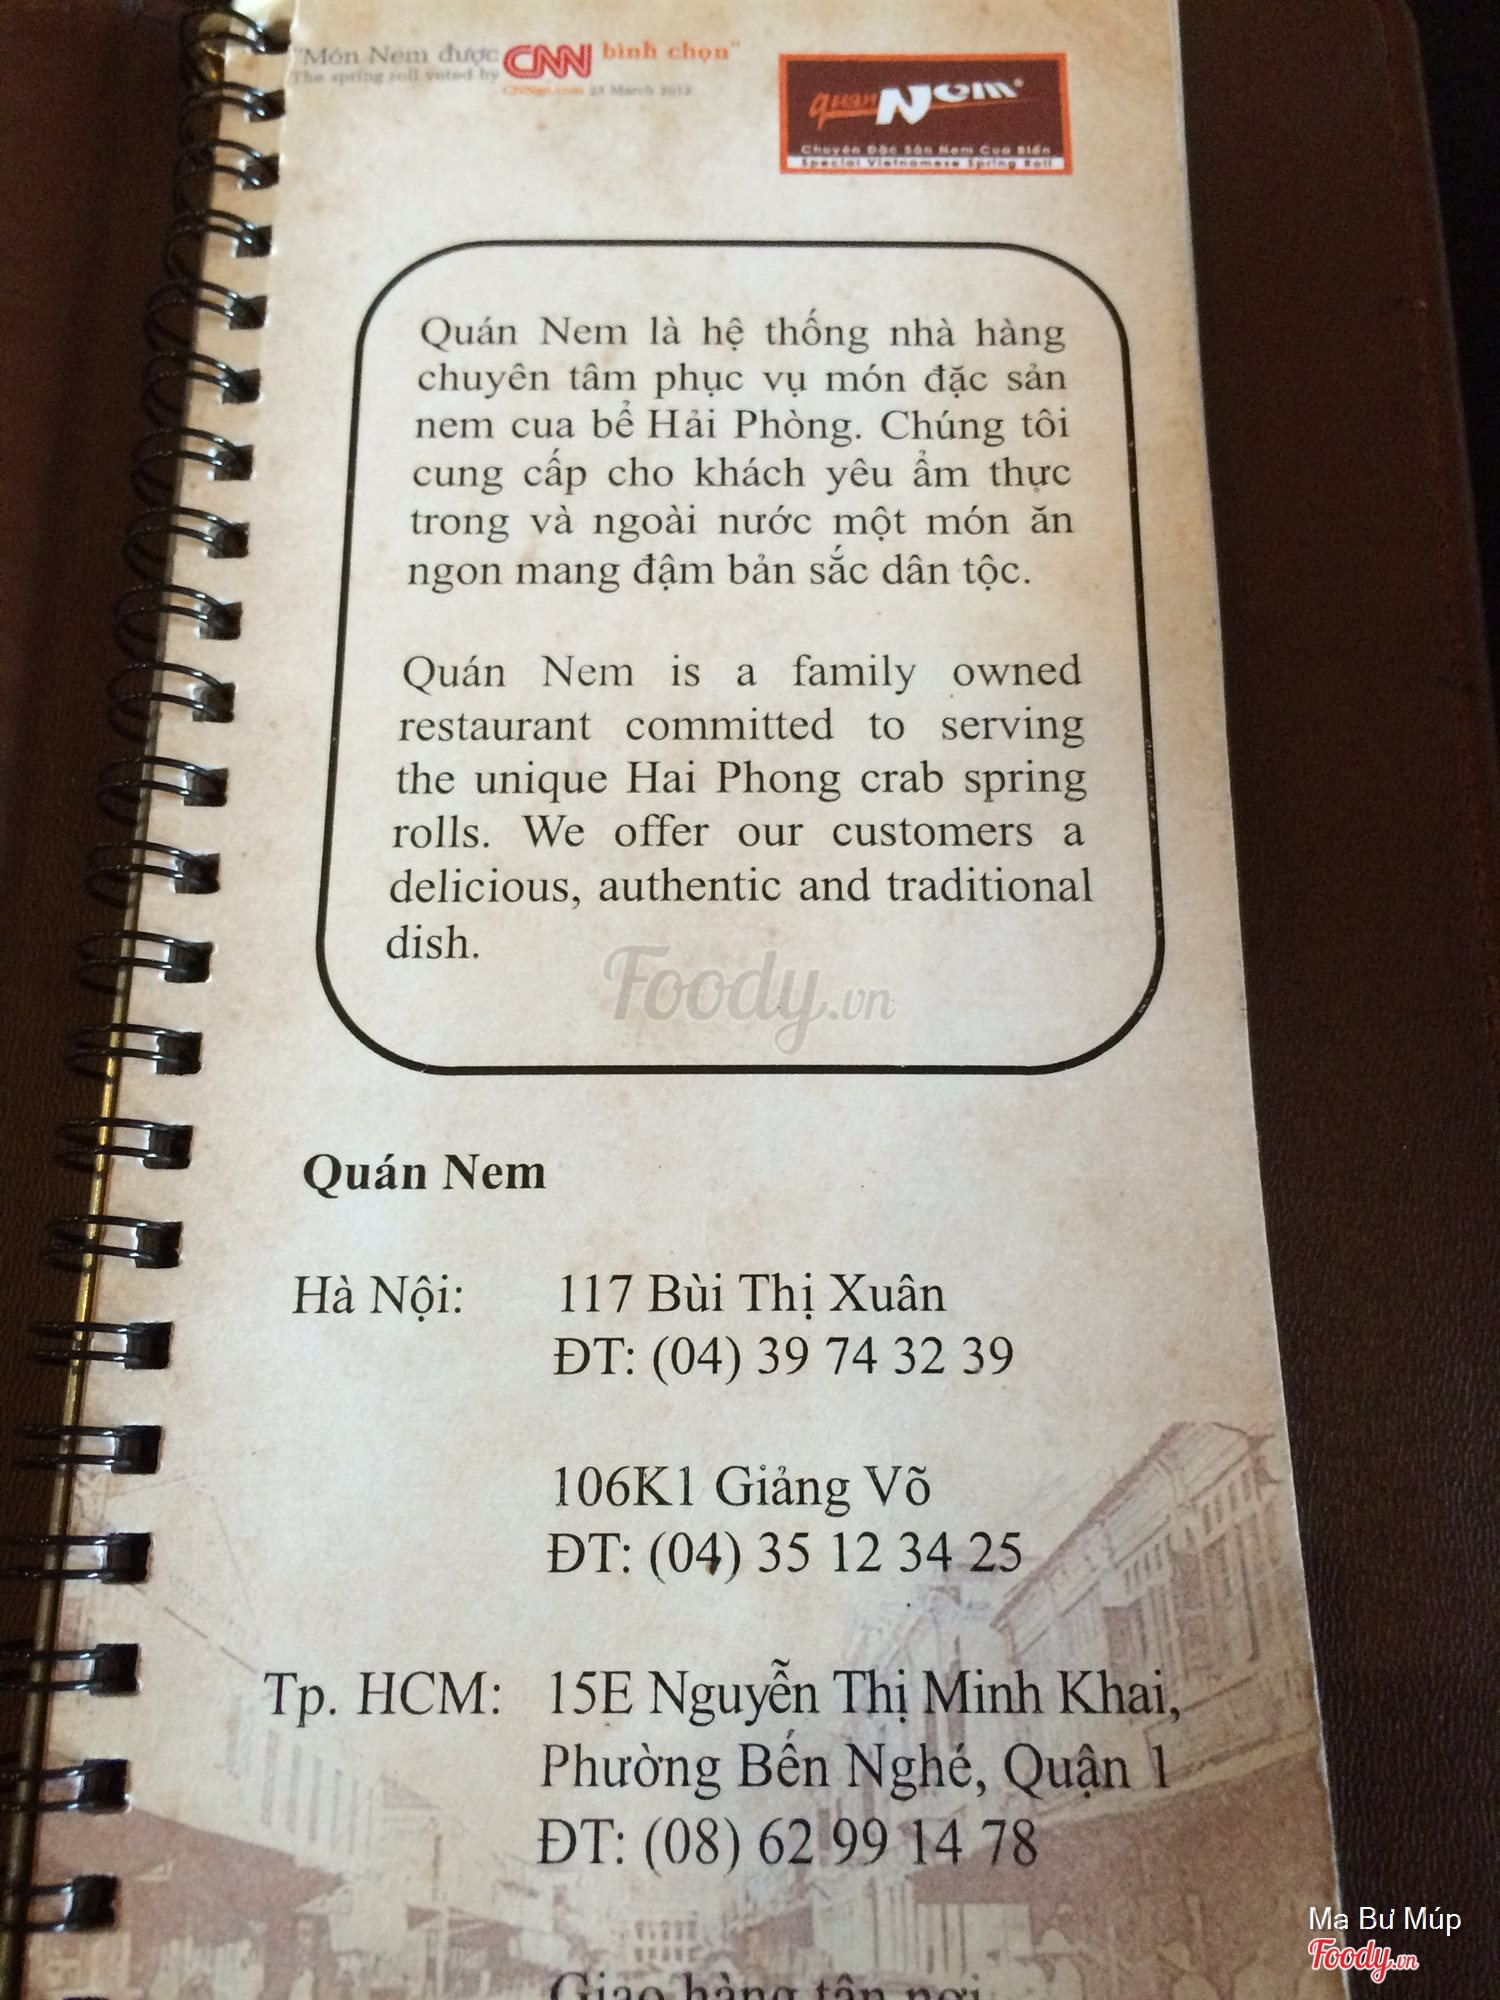 "Món Nem được CNN bình chọn"
The spring roll voted by
CNNgo.com 23 March 2012
quán Nem
Chuyên Đặc Sản Nem Cua Biển
Special Vietnamese Spring Roll
Quán Nem là hệ thống nhà hàng
chuyên tâm phục vụ món đặc sản
nem cua bể Hải Phòng. Chúng tôi
cung cấp cho khách yêu ẩm thực
trong và ngoài nước một món ăn
ngon mang đậm bản sắc dân tộc.
Quán Nem is a family owned
restaurant committed to serving
the unique Hai Phong crab spring
rolls. We offer our customers a
delicious, authentic and traditional
dish.
Foody.vn
Quán Nem
Hà Nội: 117 Bùi Thị Xuân
ĐT: (04) 39 74 32 39
106K1 Giảng Võ
ĐT: (04) 35 12 34 25
Tp. HCM: 15E Nguyễn Thị Minh Khai,
Phường Bến Nghé, Quận 1
ĐT: (08) 62 99 14 78
Giao hàng tận nơi
Ma Bư Múp
Foody.vn